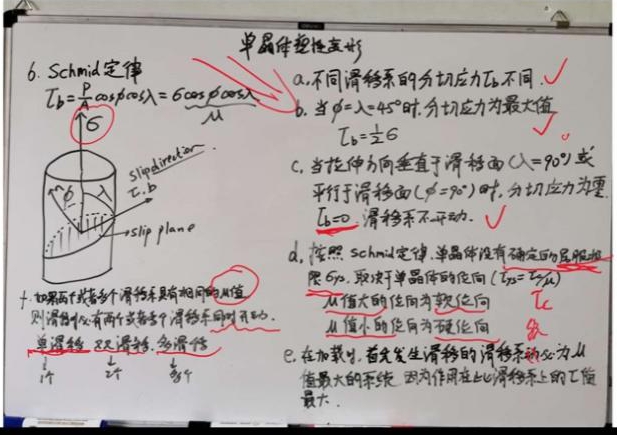 单晶体塑性变形
6. Schmid定律
τb=P/A cosφcosλ=σcosφcosλ
μ
σ
slip direction
τ.b
φ
λ
slip plane
a.不同滑移系的分切应力τb不同.
b.当φ=λ=45°时.分切应力为最大值
τb=1/2σ
c.当拉伸方向垂直于滑移面(λ=90°)或
平行于滑移面(φ=90°)时,分切应力为零.
τb=0.滑移系不开动.
d.按照schmid定律.单晶体没有确定的屈服极
限σys.取决于单晶体的位向(
μ值大的位向为软位向
τc
μ值小的位向为硬位向
e.在加载时.首先发生滑移的滑移系为μ
值最大的系统 因为作用在此滑移系上的τ值
最大.
f.如果两个或者多个滑移系具有相同的μ值
则滑移时必有两个或者多个滑移系同时开动.
单滑移 双滑移.多滑移
1个 2个 多个